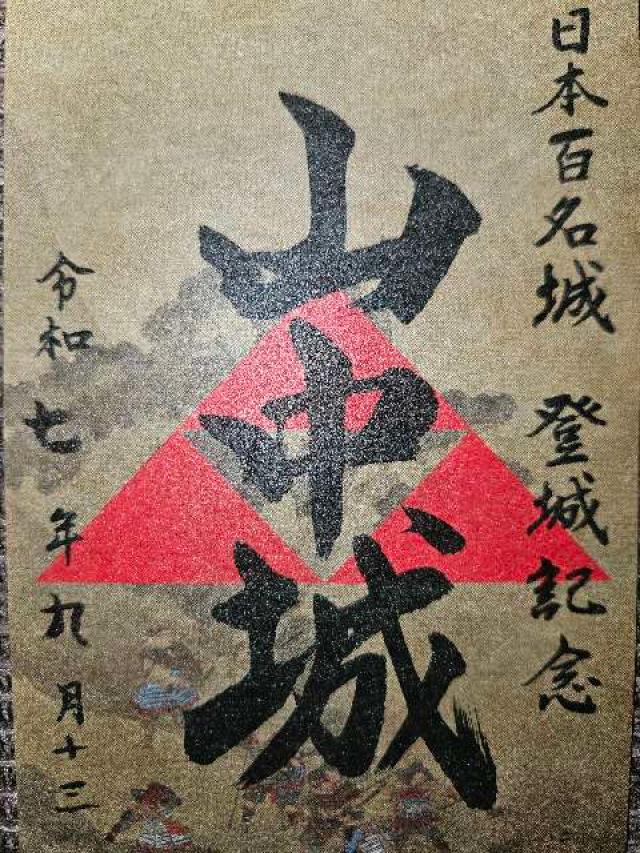 日本百名城 登城記念
山中城
令和七年九月十三